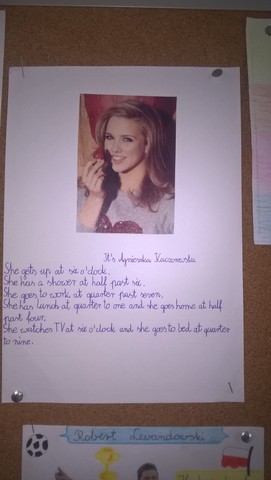 It's Agnieszka Kaczorowska
She gets up at six o'clock.
She has a shower at half past six.
She goes to work at quarter past seven.
She has lunch at quarter to one and she goes home at half
past four.
She watches TV at six o'clock and she goes to bed at quarter
to nine.
Robert Lewandowski